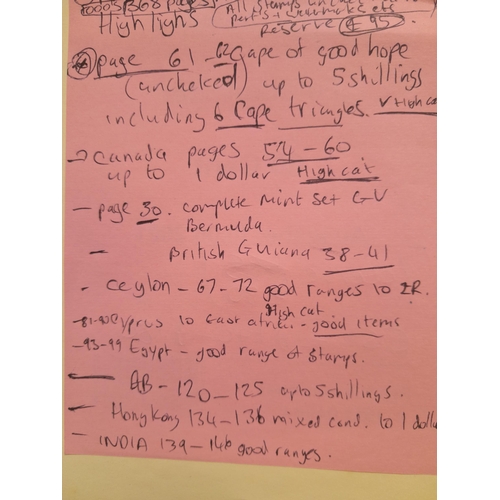 368 pages
Highlighs
(All stamps
RESERVE £95
page 61 - 62 Cape of good hope
(uncheked) up to 5 shillings
including 6 Cape triangles. V High cat
→ Canada pages 54 - 60
up to 1 dollar High cat
- page 30. complete mint set GV
Bermuda.
- British Guiana 38 - 41
- Ceylon - 67 - 72 good ranges to 2R.
High cat
- 81-90 Cyprus to East africa - good items
- 93-99 Egypt - good range of stamps.
- GB - 120 - 125 up to 5 shillings.
- Hong Kong 134 - 136 mixed cond. to 1 dolla
- INDIA 139 - 146 good ranges.